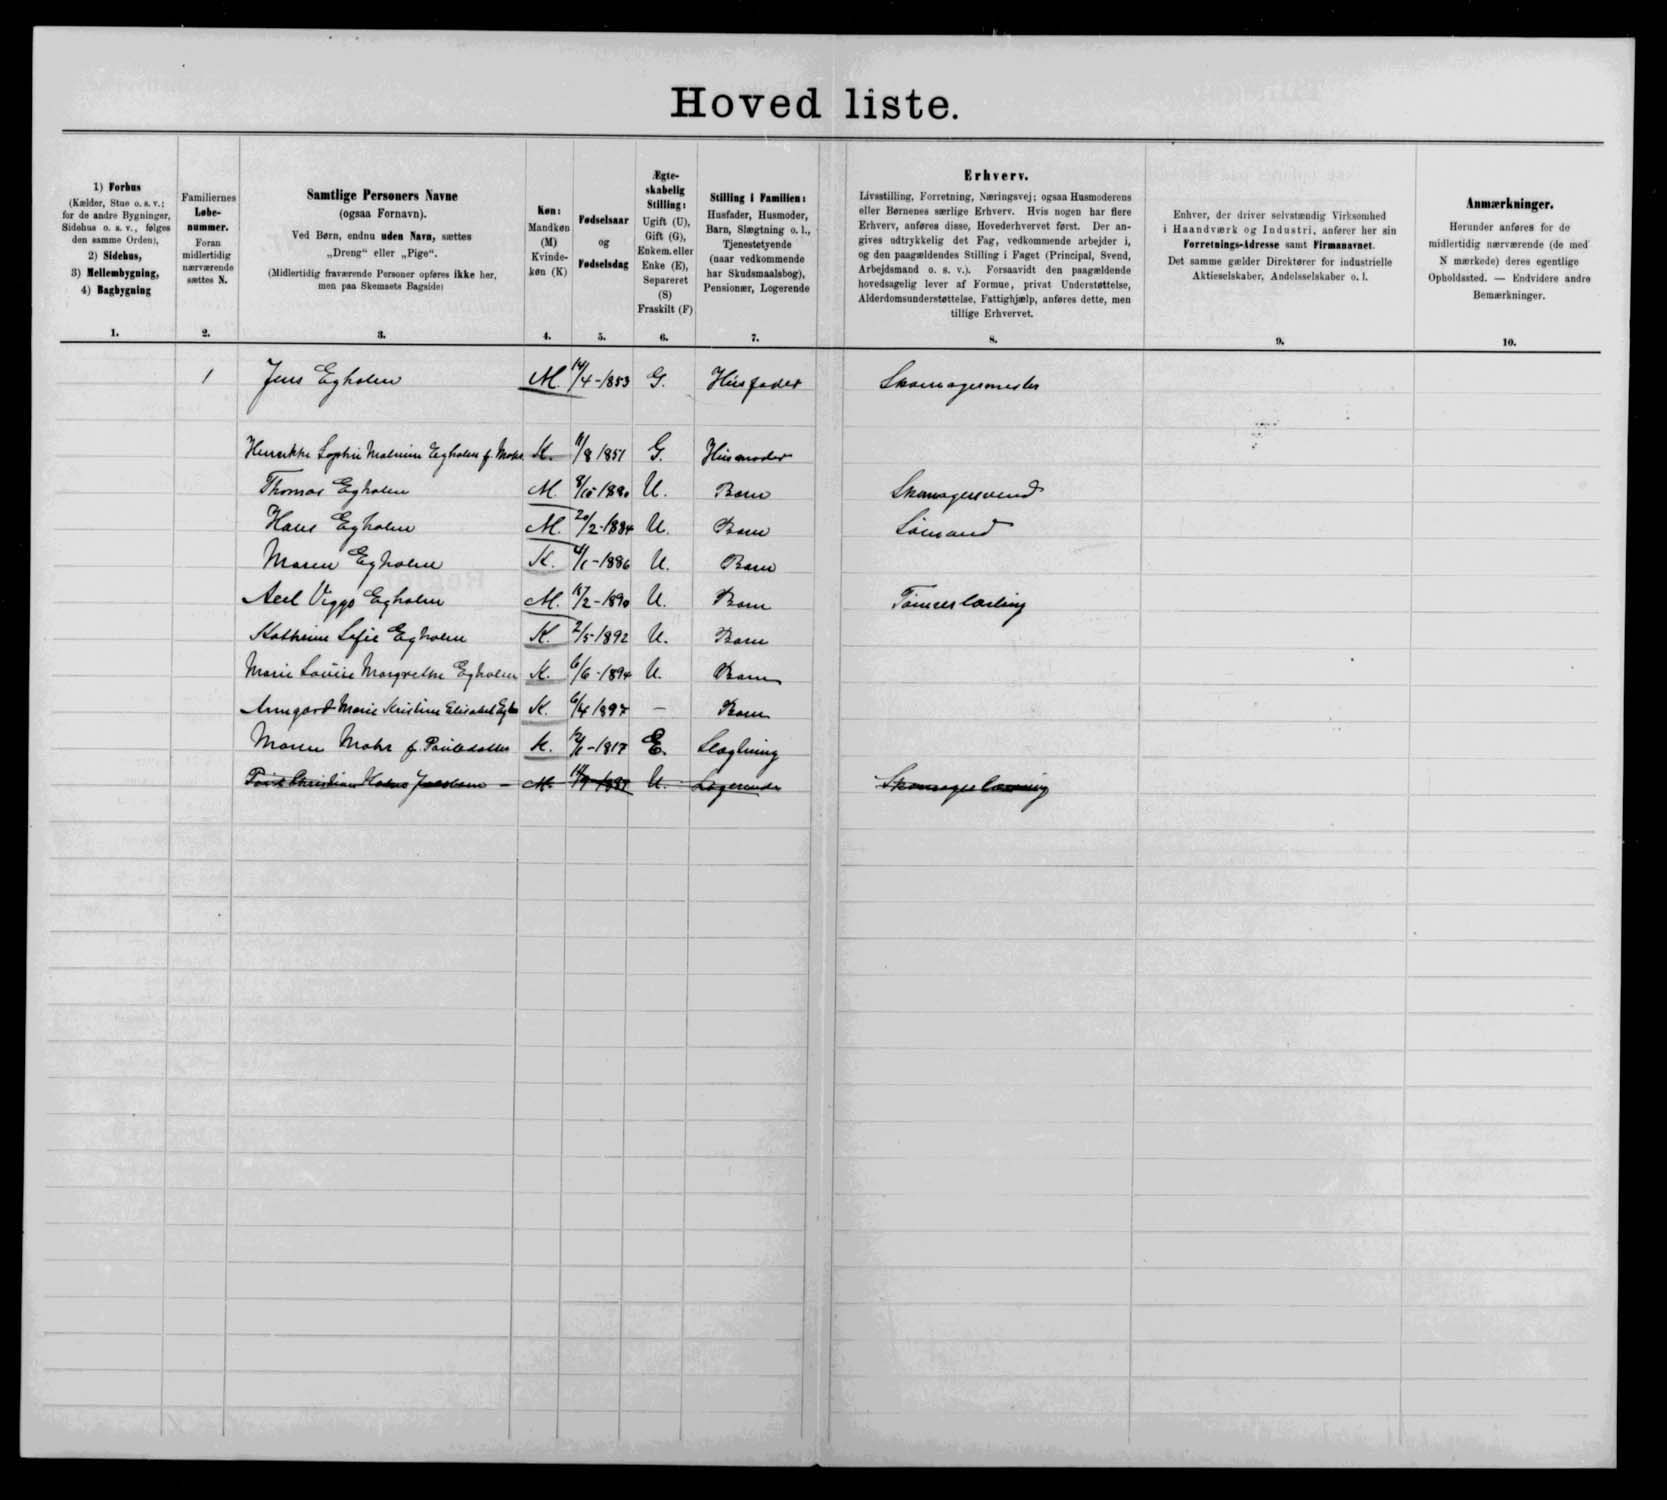 Hovedliste.
1) Forhus
(Kælder, Stue o. s. v.;
for de andre Bygninger,
Sidehus o. s. v., følges
den samme Orden),
2) Sidehus,
3) Mellembygning,
4) Bagbygning
1.
Familiernes
Løbe-
nummer.
Foran
midlertidig
nærværende
sættes N.
2.
Samtlige Personers Navne
(ogsaa Fornavn).
Ved Børn, endnu uden Navn, sættes
„Dreng“ eller „Pige“.
(Midlertidig fraværende Personer opføres ikke her,
men paa Skemaets Bagside)
3.
Køn:
Mandkøn
(M)
Kvinde-
køn (K)
4.
Fødselsaar
og
Fødselsdag
5.
Ægte-
skabelig
Stilling:
Ugift (U),
Gift (G),
Enkem. eller
Enke (E),
Separeret
(S)
Fraskilt (F)
6.
Stilling i Familien:
Husfader, Husmoder,
Barn, Slægtning o. l.,
Tjenestetyende
(naar vedkommende
har Skudsmaalsbog),
Pensionær, Logerende
7.
Erhverv.
Livsstilling, Forretning, Næringsvej; ogsaa Husmoderens
eller Børnenes særlige Erhverv. Hvis nogen har flere
Erhverv, anføres disse, Hovederhvervet først. Der an-
gives udtrykkelig det Fag, vedkommende arbejder i,
og den paagældendes Stilling i Faget (Principal, Svend,
Arbejdsmand o. s. v.). Forsaavidt den paagældende
hovedsagelig lever af Formue, privat Understøttelse,
Alderdomsunderstøttelse, Fattighjælp, anføres dette, men
tillige Erhvervet.
8.
Enhver, der driver selvstændig Virksomhed
i Haandværk og Industri, anfører her sin
Forretnings-Adresse samt Firmanavnet.
Det samme gælder Direktører for industrielle
Aktieselskaber, Andelsselskaber o. l.
9.
Anmærkninger.
Herunder anføres for de
midlertidig nærværende (de med
N mærkede) deres egentlige
Opholdssted. — Endvidere andre
Bemærkninger.
10.
1 Jens Egholm M. 14/4-1853 G. Husfader Skomagermester
Henrikke Sophie Egholm f. Mohr K. 11/8 1851 G. Husmoder
Thomas Egholm M. 1880 U. Barn Skomagersvend
Hans Egholm M. 20/2-1884 U. Barn Sømand
Maren Egholm K. 1886 U. Barn
Axel Viggo Egholm M. 1890 U. Barn Tømrerlærling
Kathrine Sofie Egholm K. 2/5-1892 U. Barn
Marie Louise Margrethe Egholm K. 6/6-1894 U. Barn
Armgard Marie Kristine Elisabet K. 6/4 1897 — Barn
Maren Mohr f. K. 1817 E. Slægtning
Christian M. U. Logerende Skomagerlærling